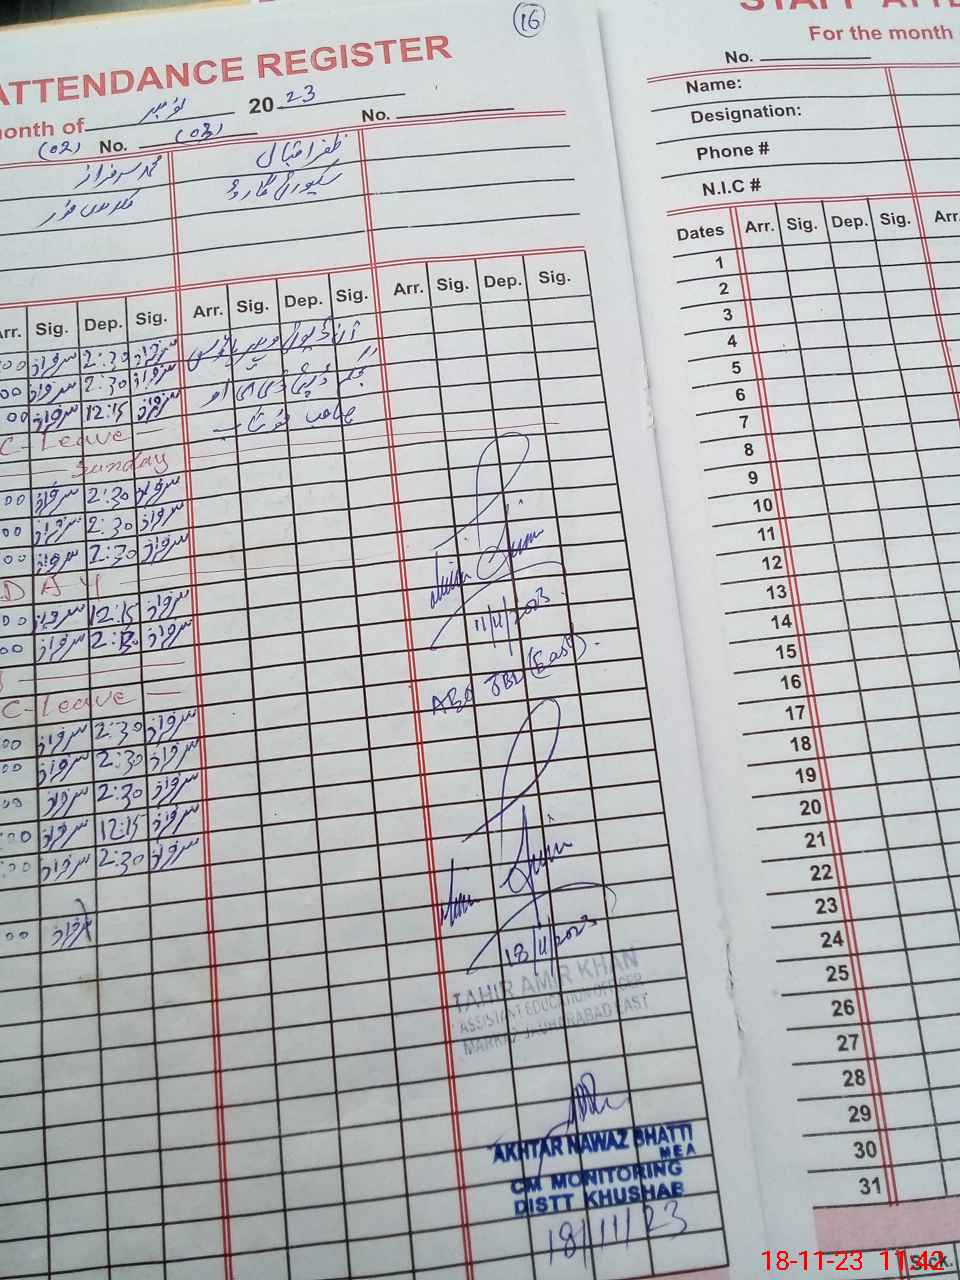 16
ATTENDANCE REGISTER
month of نومبر 2023
(02) No. (03) No.
محمد سرفراز ظفر اقبال
سکیورٹی گارڈ
Arr. Sig. Dep. Sig. Arr. Sig. Dep. Sig. Arr. Sig. Dep. Sig.
00 سرفراز 2:30 سرفراز
00 سرفراز 2:30 سرفراز
00 سرفراز 12:15 سرفراز
C-Leave
Sunday
00 سرفراز 2:30 سرفراز
00 سرفراز 2:30 سرفراز
00 سرفراز 2:30 سرفراز
DAY
00 سرفراز 12:15 سرفراز
00 سرفراز 2:30 سرفراز
C-Leave
00 سرفراز 2:30 سرفراز
00 سرفراز 2:30 سرفراز
00 سرفراز 2:30 سرفراز
00 سرفراز 12:15 سرفراز
00 سرفراز 2:30 سرفراز
00 سرفراز
11/11/2023
AEO JBD (East).
18/11/2023
TAHIR AMIR KHAN
ASSISTANT EDUCATION OFFICER
MARKAZ JAUHARABAD EAST
AKHTAR NAWAZ BHATTI
MEA
CM MONITORING
DISTT KHUSHAB
18/11/23
STAFF ATTE
For the month
No.
Name:
Designation:
Phone #
N.I.C #
Dates Arr. Sig. Dep. Sig. Arr.
1
2
3
4
5
6
7
8
9
10
11
12
13
14
15
16
17
18
19
20
21
22
23
24
25
26
27
28
29
30
31
Sick.
18-11-23 11:42